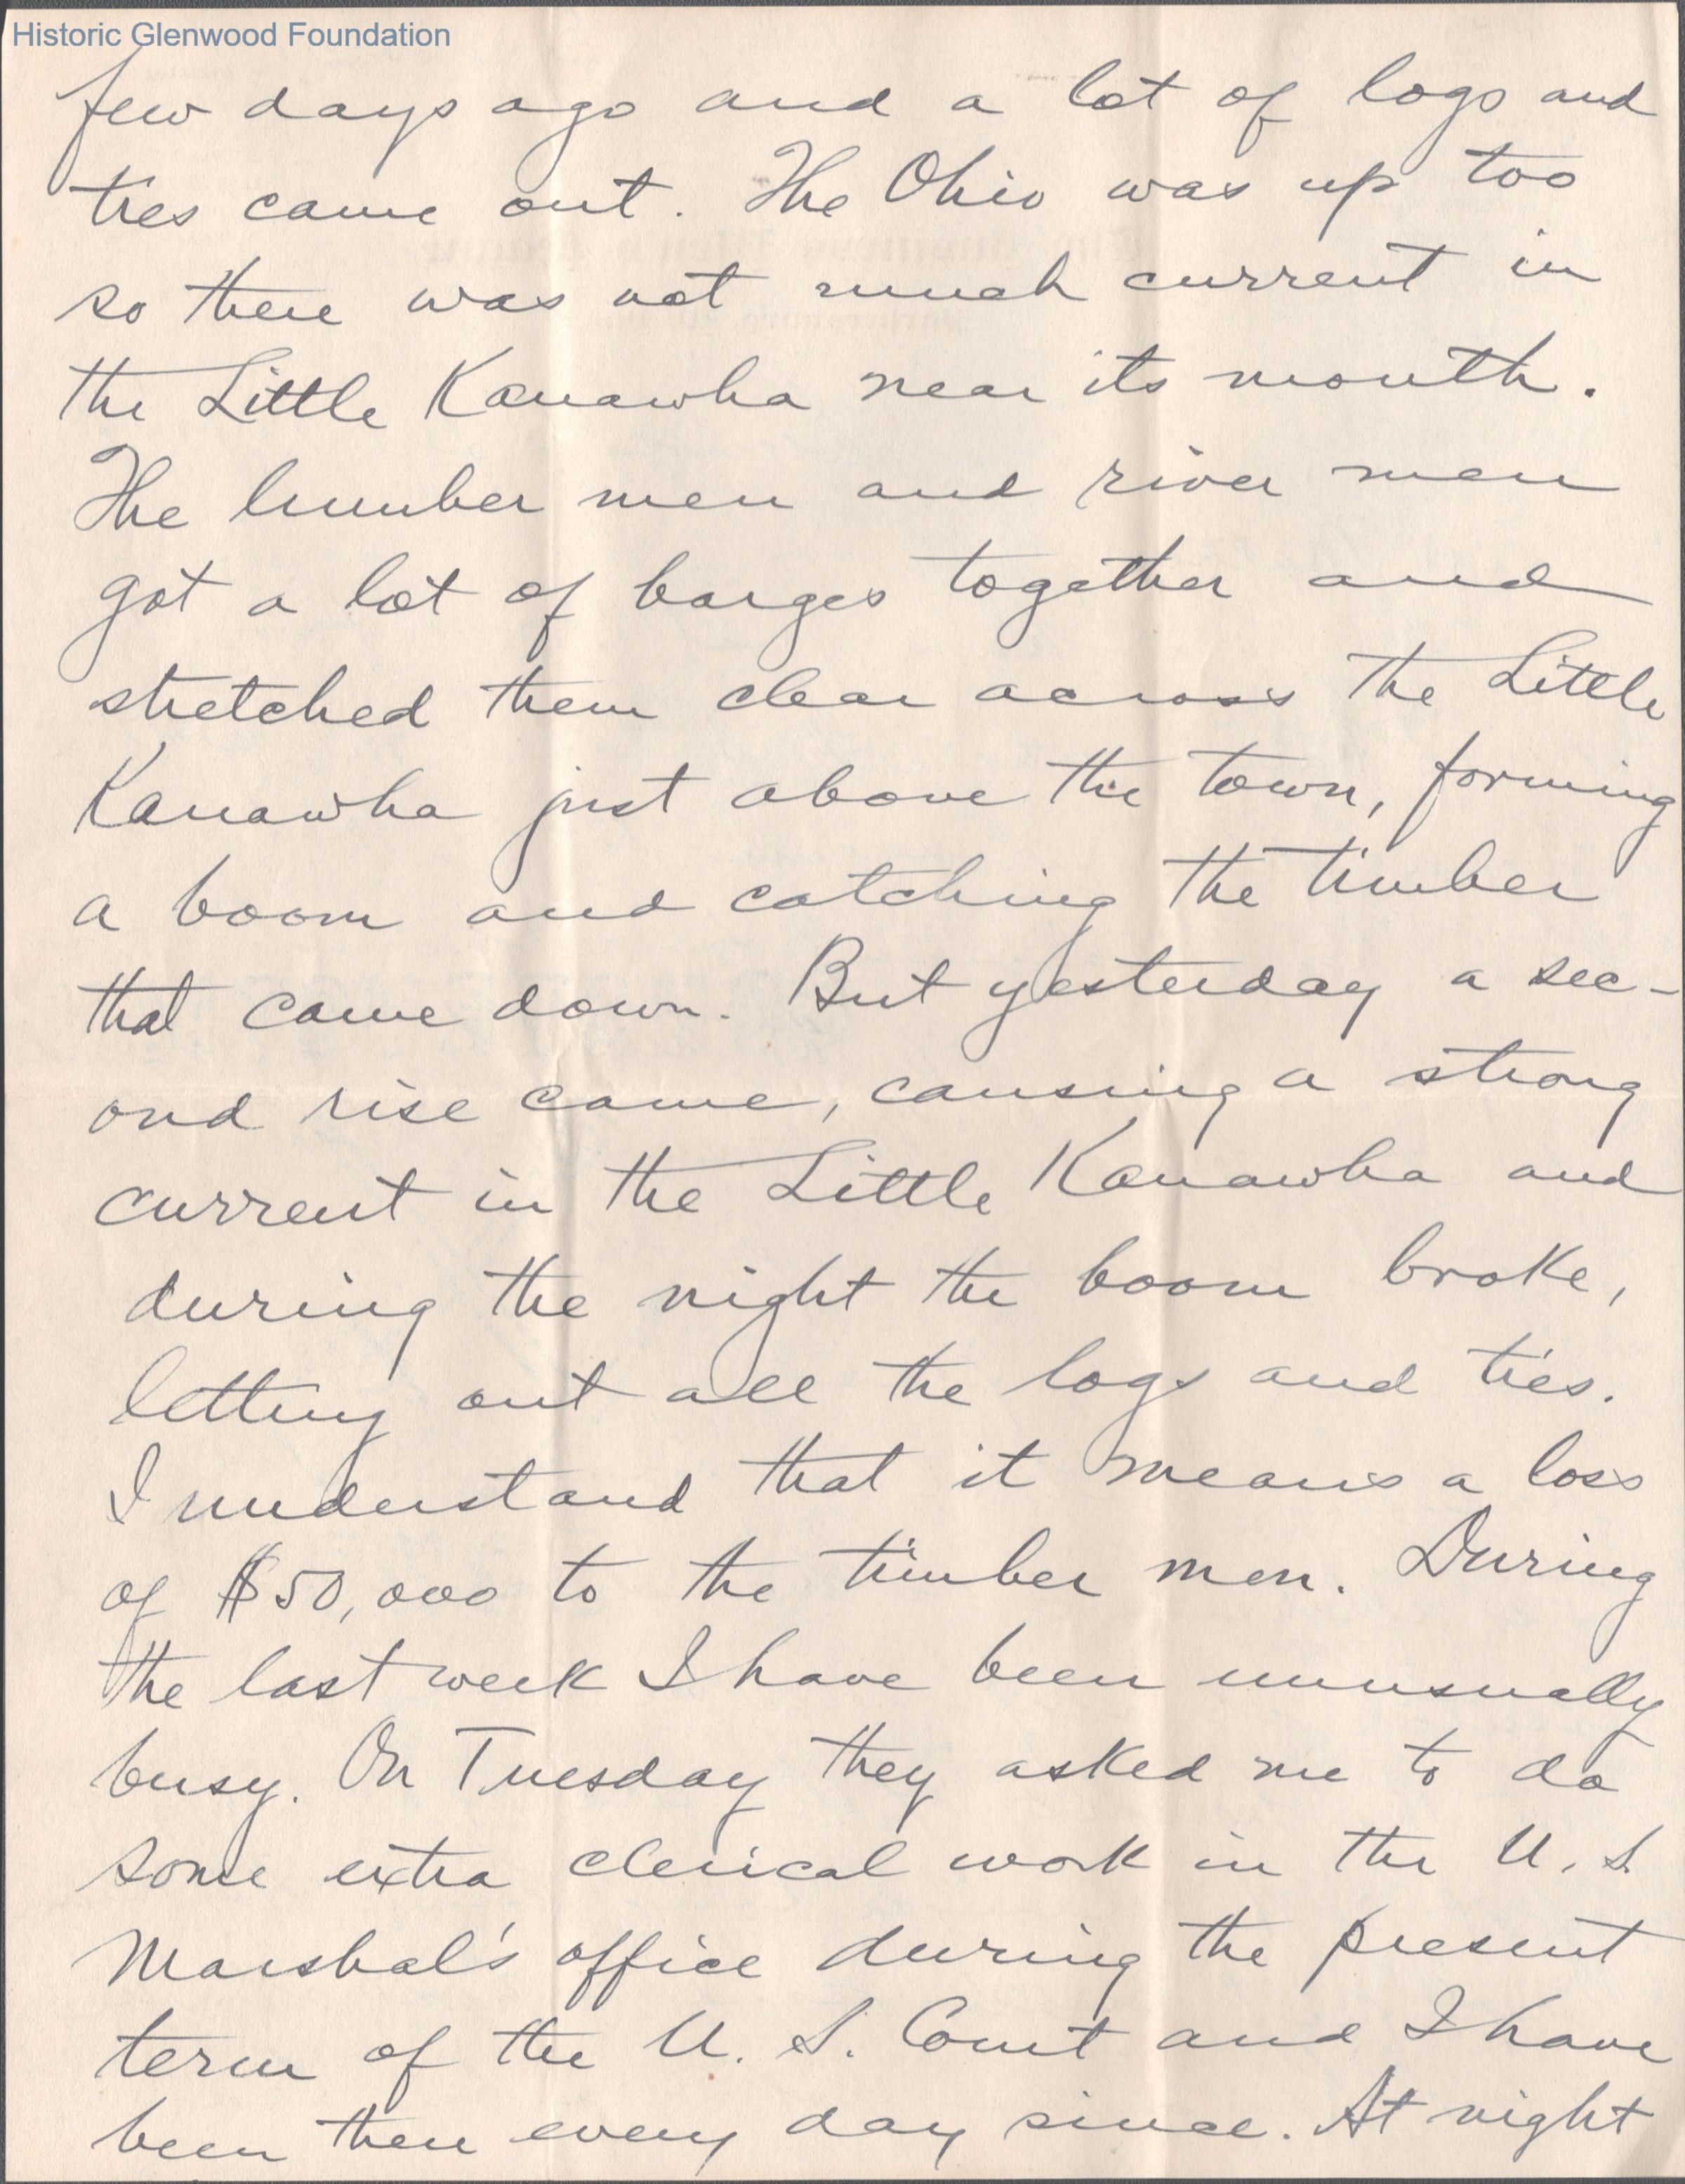 Historic Glenwood Foundation
few days ago and a lot of logs and
ties came out. The Ohio was up too
so there was not much current in
the Little Kanawha near its mouth.
The lumber men and river men
got a lot of barges together and
stretched them clear across the Little
Kanawha just above the town, forming
a boom and catching the timber
that came down. But yesterday a sec-
ond rise came, causing a strong
current in the Little Kanawha and
during the night the boom broke,
letting out all the logs and ties.
I understand that it means a loss
of $50,000 to the timber men. During
the last week I have been unusually
busy. On Tuesday they asked me to do
some extra clerical work in the U. S.
Marshal's office during the present
term of the U. S. Court and I have
been there every day since. At night